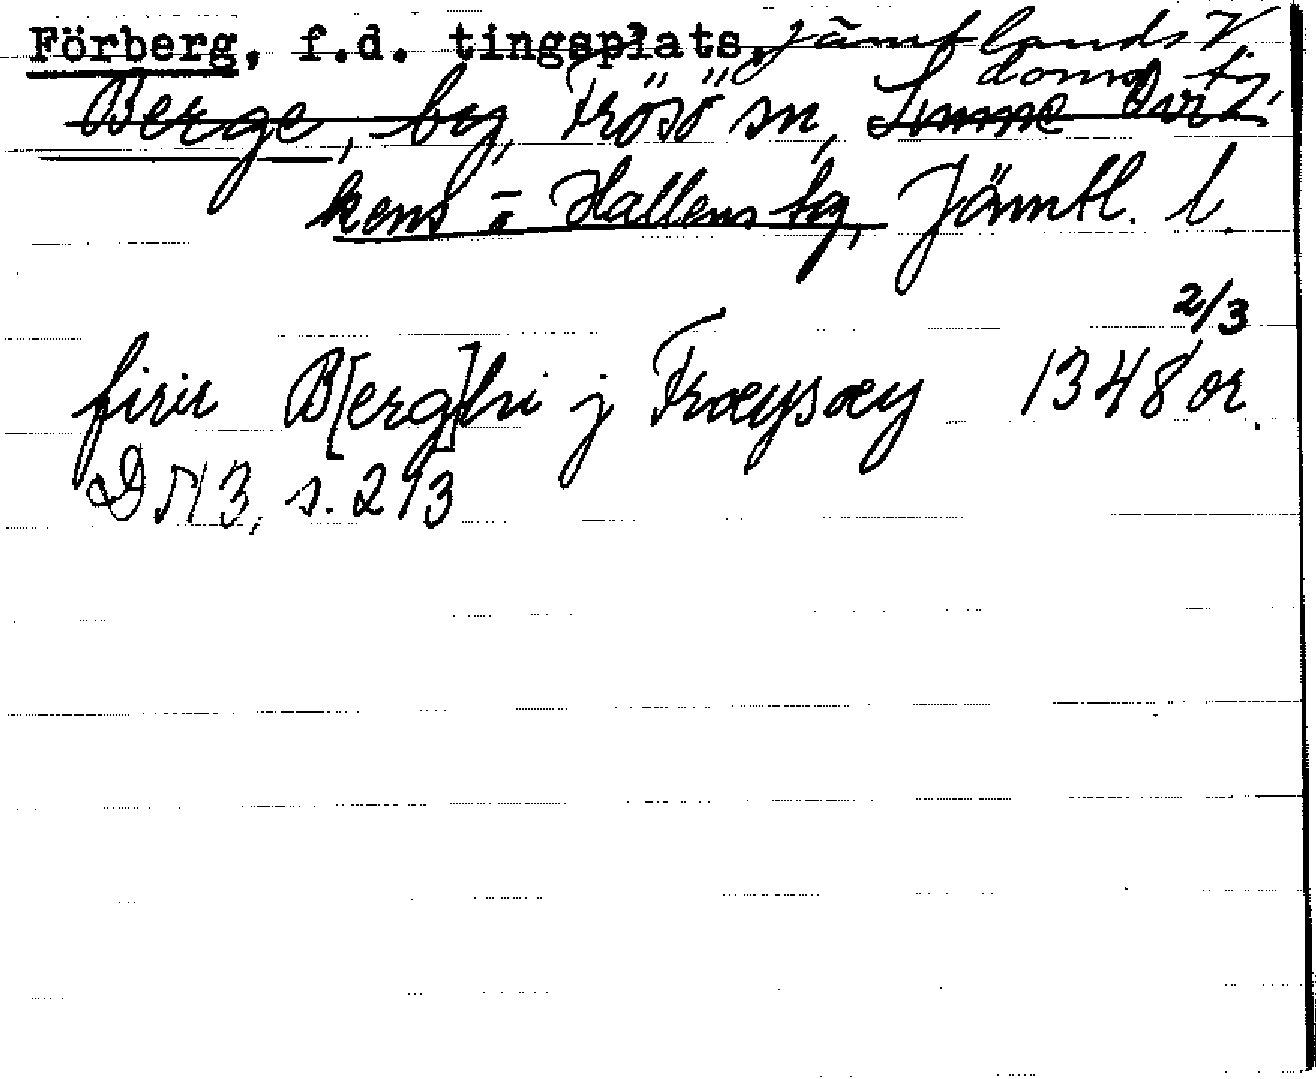 Förberg, f.d. tingsplats, Jämtlands V.
doms. tg,
Berge, by, Frösö sn, Sunne Ovi-
kens o Hallens tg, Jämtl. l.
2/3
firir B[erg]hi j Fræysæy 1348 or.
DN 3, s. 213